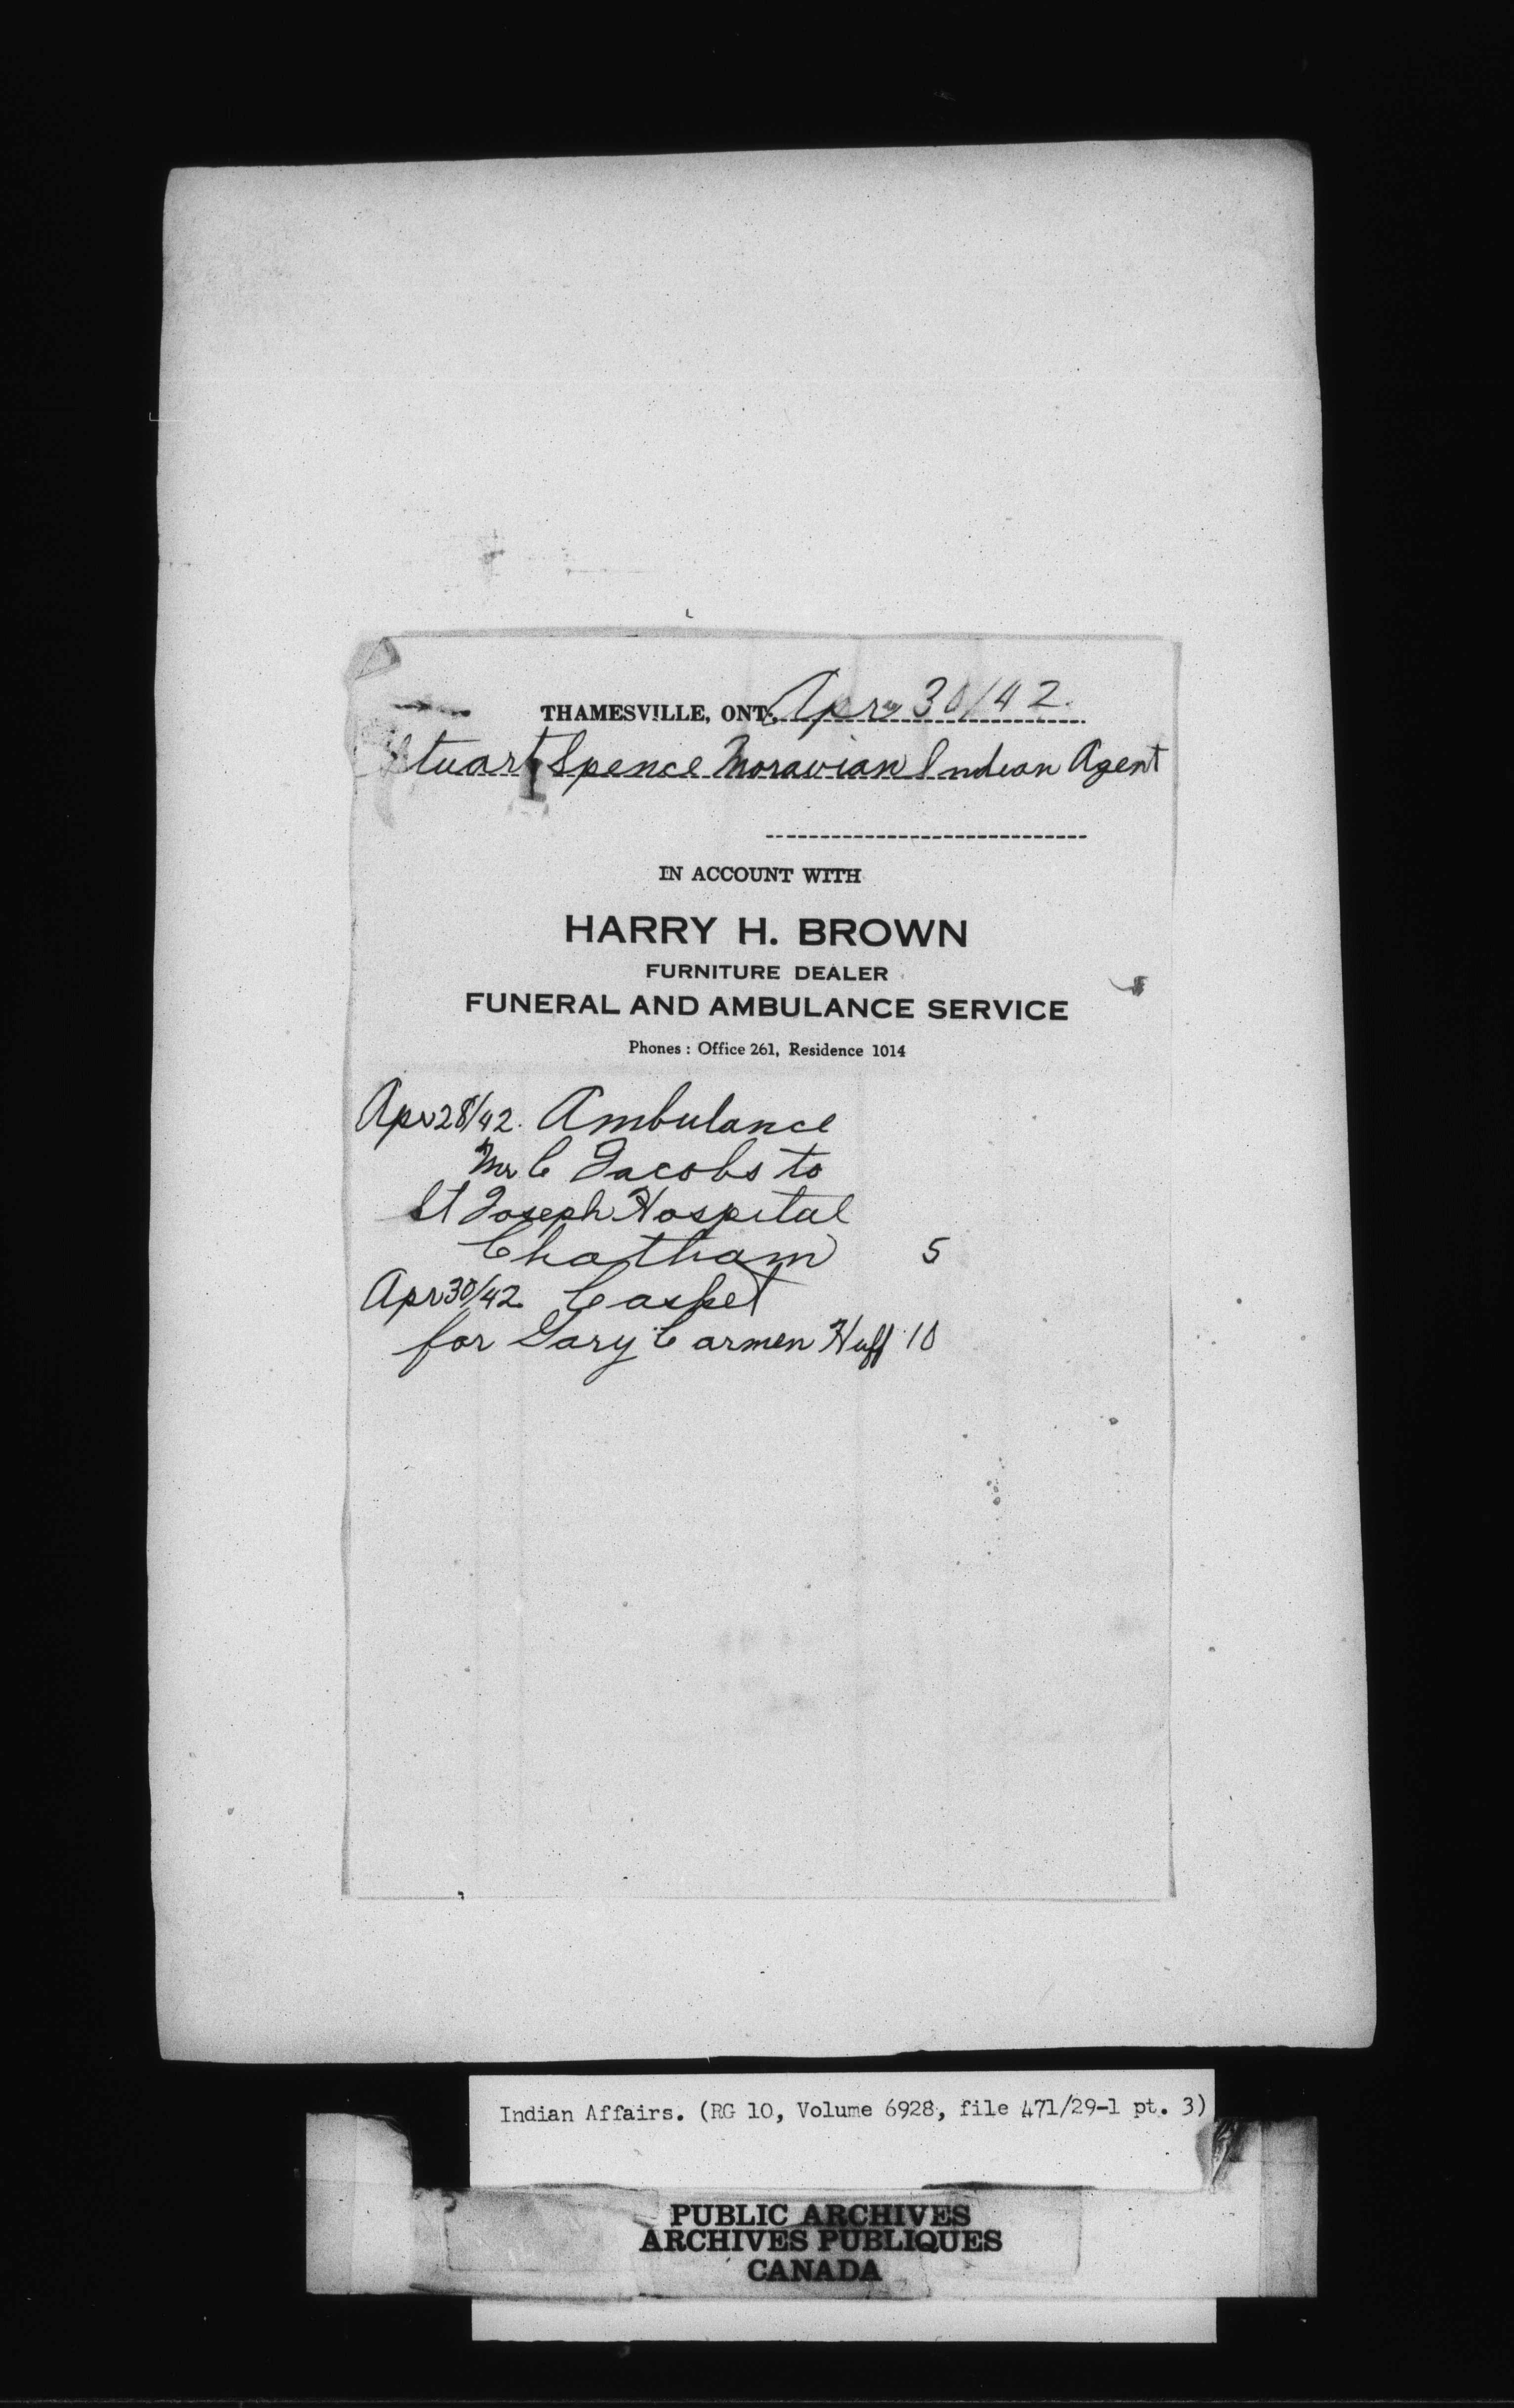 THAMESVILLE, ONT. Apr 30/42.
Stuart Spence Moravian Indian Agent
IN ACCOUNT WITH
HARRY H. BROWN
FURNITURE DEALER
FUNERAL AND AMBULANCE SERVICE
Phones : Office 261, Residence 1014
Apr 28/42. Ambulance
Mr C Jacobs to
St Joseph Hospital
Chatham 5
Apr 30/42 Casket
for Gary Carmen Huff 10
Indian Affairs. (RG 10, Volume 6928, file 471/29-1 pt. 3)
PUBLIC ARCHIVES
ARCHIVES PUBLIQUES
CANADA